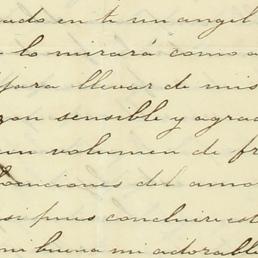 ado en ti mi angel
lo mirará como a
para llevar de mis
zon sensible y agrad
un volumen de fr
ociones del amo
si pues concluire est
mi buena mi adorable